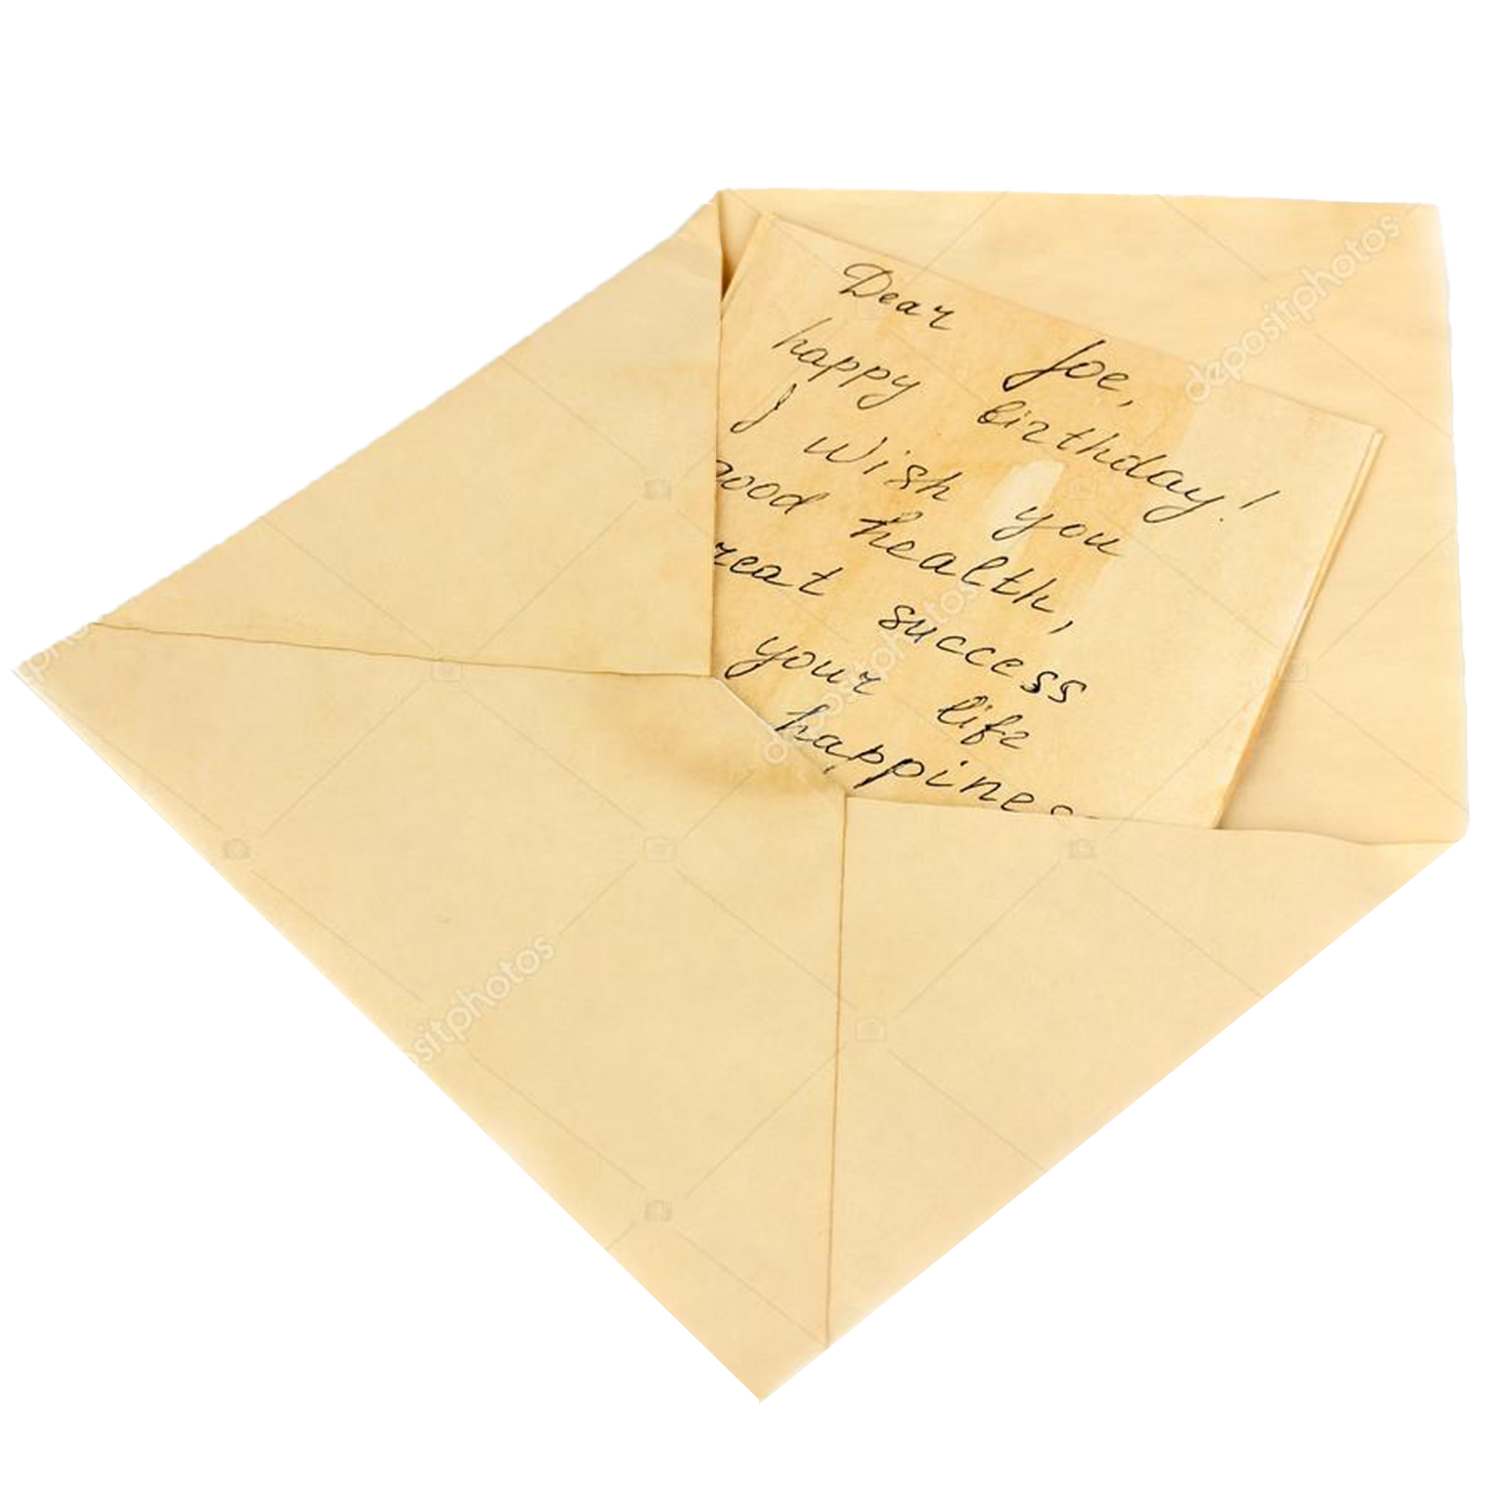 Dear Joe,
happy birthday!
I wish you
ood health,
reat success
your life
happines
depositphotos
depositphotos
depositphotos